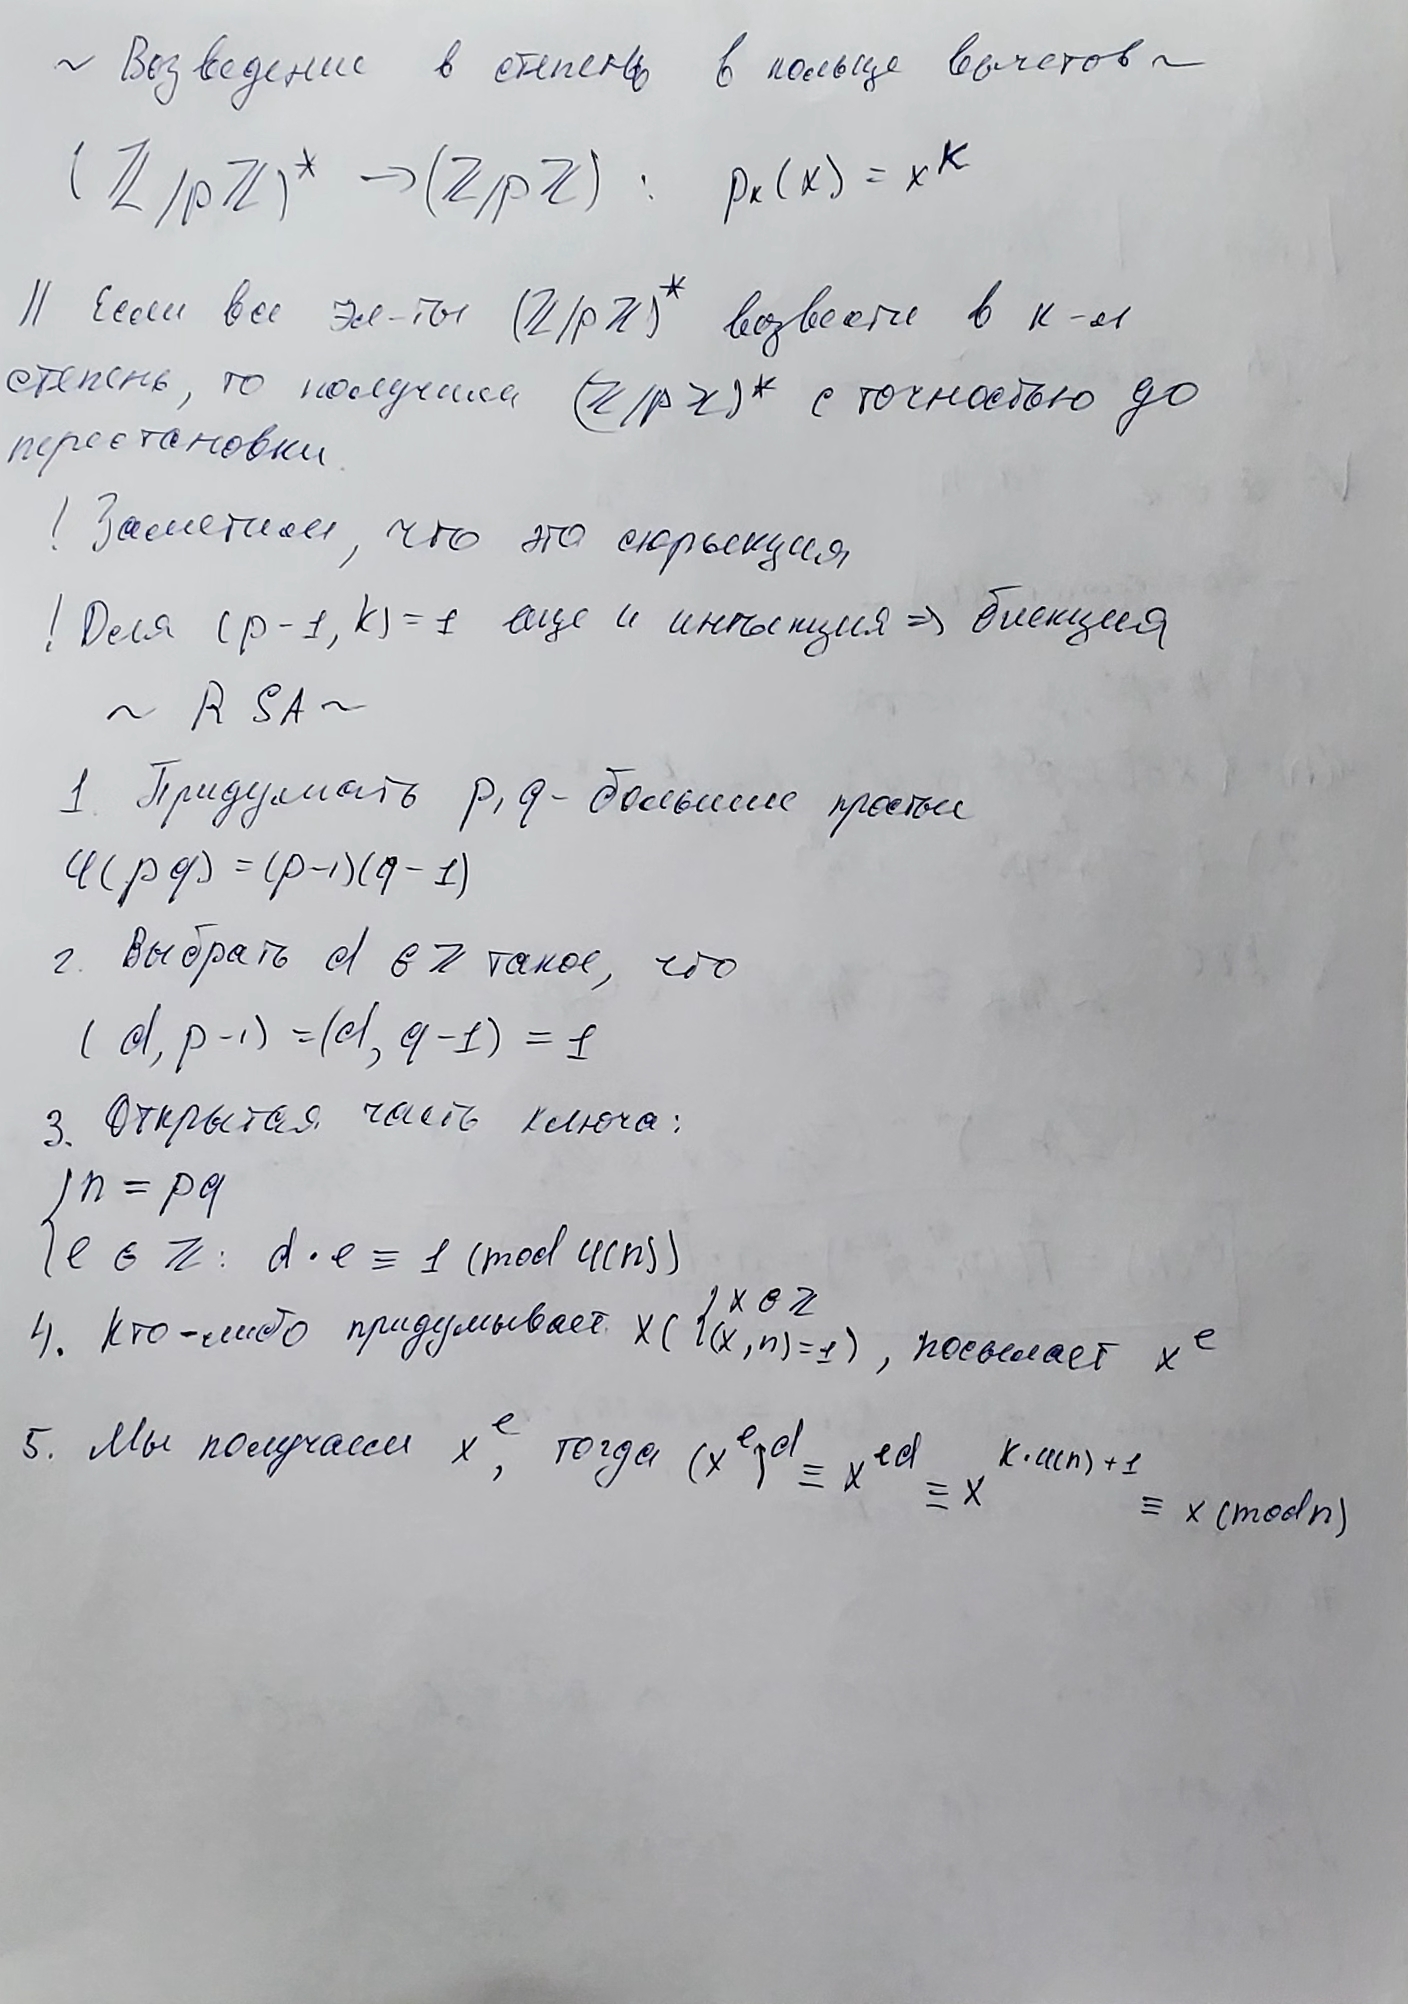 ~ Возведение в степень в кольце вычетов ~
(ℤ/pℤ)* → (ℤ/pℤ) : pₖ(x) = x^k
// Если все эл-ты (ℤ/pℤ)* возвести в к-ю
степень, то получим (ℤ/pℤ)* с точностью до
перестановки.
! Заметим, что это сюръекция
! Для (p-1, k)=1 еще и инъекция ⇒ биекция
~ RSA ~
1. Придумать p, q - большие простые
φ(pq) = (p-1)(q-1)
2. Выбрать d ∈ ℤ такое, что
(d, p-1) = (d, q-1) = 1
3. Открытая часть ключа:
{ n = pq
{ e ∈ ℤ: d·e ≡ 1 (mod φ(n))
4. Кто-либо придумывает x ({ x ∈ ℤ (x, n)=1), посылает x^e
5. Мы получаем x^e, тогда (x^e)^d ≡ x^ed ≡ x^(k·φ(n)+1) ≡ x (mod n)